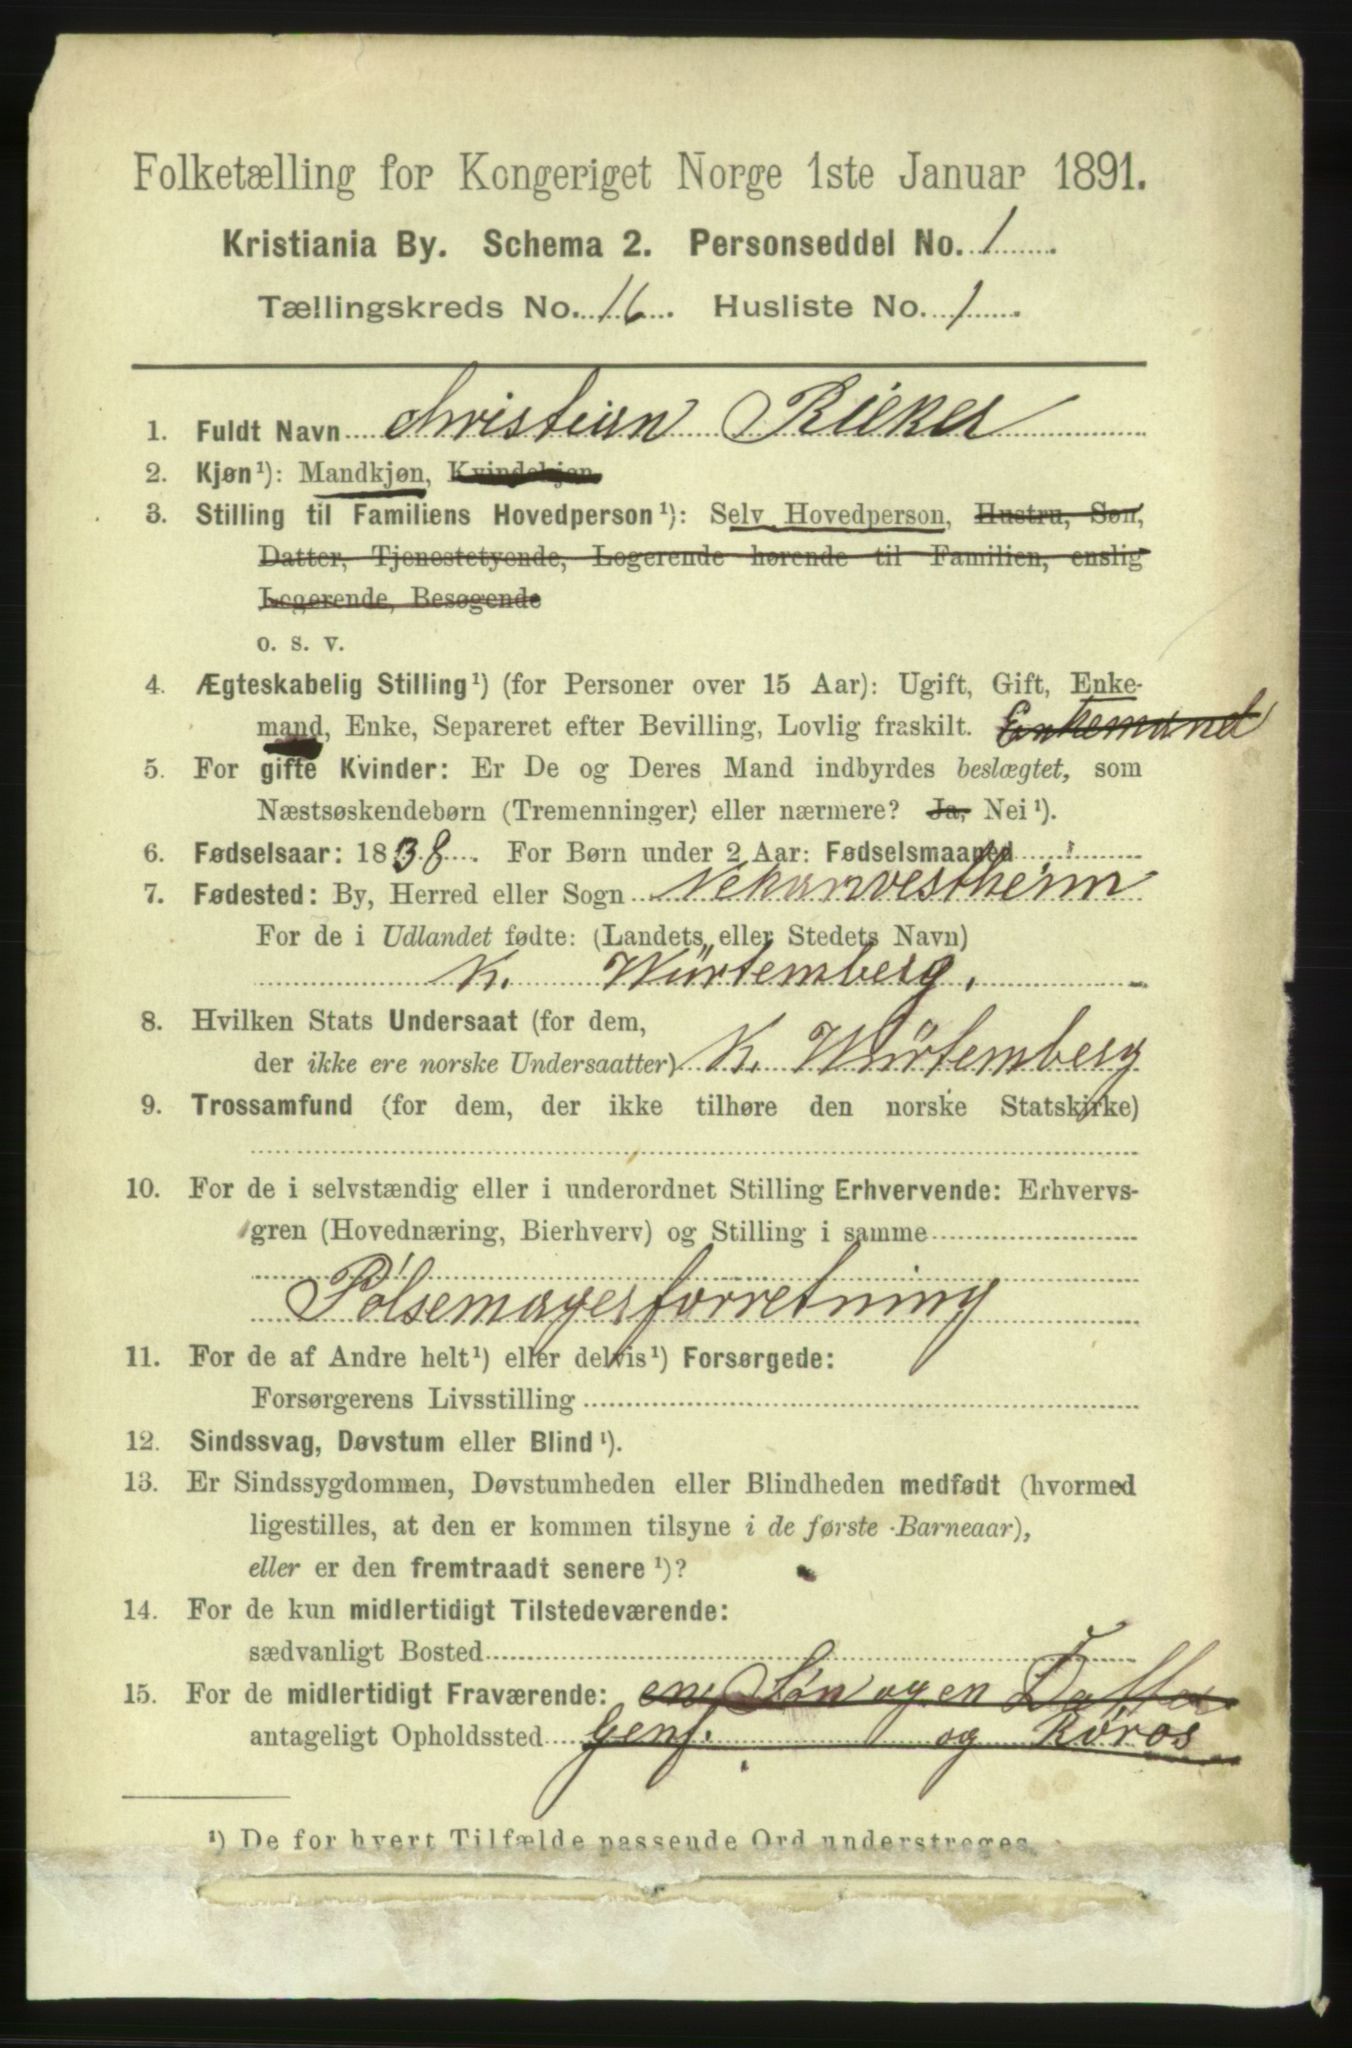 Folketælling for Kongeriget Norge 1ste Januar 1891.
Kristiania By. Schema 2. Personseddel No. 1
Tællingskreds No. 16. Husliste No. 1
1. Fuldt Navn Christian Rieker
2. Kjøn¹): Mandkjøn, Kvindekjøn
3. Stilling til Familiens Hovedperson¹): Selv Hovedperson, Hustru, Søn,
Datter, Tjenestetyende, Logerende hørende til Familien, enslig
Logerende, Besøgende
o. s. v.
4. Ægteskabelig Stilling¹) (for Personer over 15 Aar): Ugift, Gift, Enke-
mand, Enke, Separeret efter Bevilling, Lovlig fraskilt. Enkemand
5. For gifte Kvinder: Er De og Deres Mand indbyrdes beslægtet, som
Næstsøskendebørn (Tremenninger) eller nærmere? Ja, Nei¹).
6. Fødselsaar: 1838. For Børn under 2 Aar: Fødselsmaaned
7. Fødested: By, Herred eller Sogn Nekarvestheim
For de i Udlandet fødte: (Landets eller Stedets Navn)
K. Würtemberg.
8. Hvilken Stats Undersaat (for dem,
der ikke ere norske Undersaatter) K. Würtemberg
9. Trossamfund (for dem, der ikke tilhøre den norske Statskirke)
10. For de i selvstændig eller i underordnet Stilling Erhvervende: Erhvervs-
gren (Hovednæring, Bierhverv) og Stilling i samme
Pølsemagerforretning
11. For de af Andre helt¹) eller delvis¹) Forsørgede:
Forsørgerens Livsstilling
12. Sindssvag, Døvstum eller Blind¹).
13. Er Sindssygdommen, Døvstumheden eller Blindheden medfødt (hvormed
ligestilles, at den er kommen tilsyne i de første Barneaar),
eller er den fremtraadt senere¹)?
14. For de kun midlertidigt Tilstedeværende:
sædvanligt Bosted
15. For de midlertidigt Fraværende: en Søn og en Datter
antageligt Opholdssted Genf. og Røros
¹) De for hvert Tilfælde passende Ord understreges.